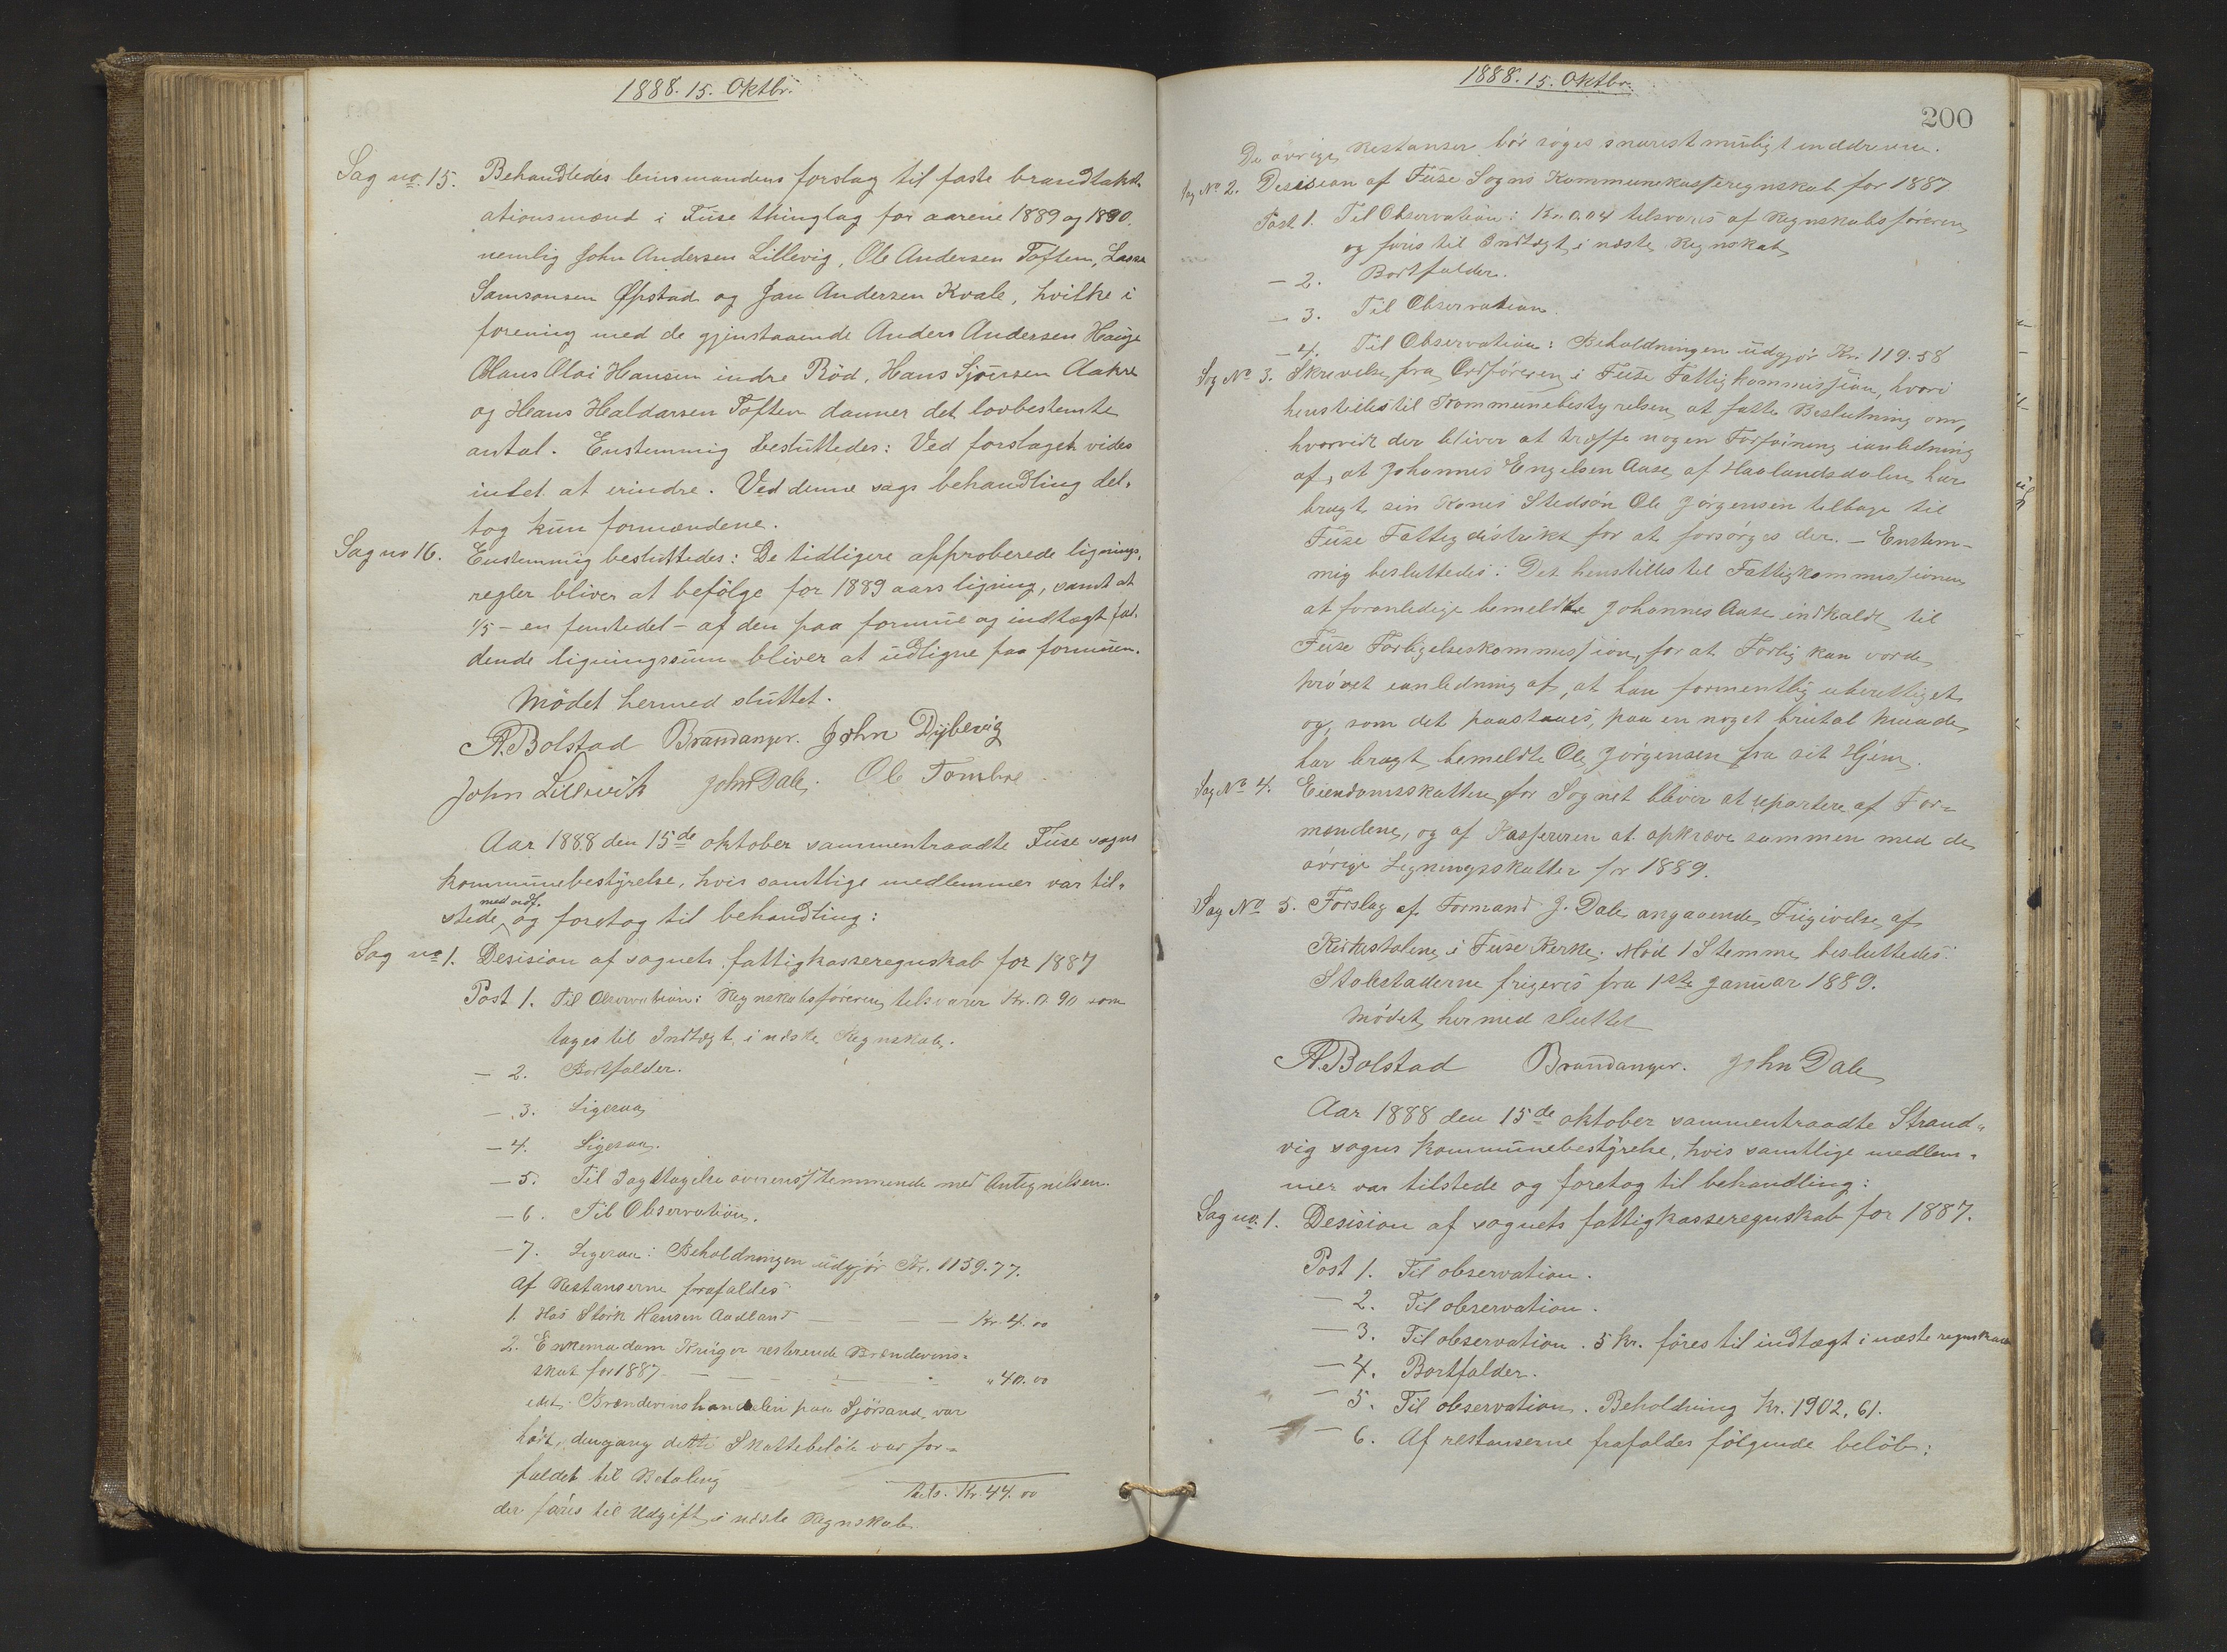 1888. 15. Oktbr.
Sag no. 15. Behandledes lensmandens forslag til faste brandtakst-
ationsmænd i Fuse thinglag for aarene 1889 og 1890.
nemlig John Andersen Lillevig, Ole Andersen Toften, Lasse
Samsonsen Øpstad og Jan Andersen Kvale, hvilke i
forening med de gjenstaaende Anders Andersen Hauge
Olaus Olai Hansen indre Röd, Hans Sjursen Aakre
og Hans Haldorsen Toften danner det lovbestemte
antal. Enstemmig besluttedes: Ved forslaget vides
intet at erindre. Ved denne sags behandling del-
tog kun formændene.
Sag no 16. Enstemmig besluttedes: De tidligere approberede lignings-
regler bliver at befölge for 1889 aars ligning, samt at
1/5 - en femtedel - af den paa formue og indtægt fal-
dende ligningssum bliver at udligne paa formuen.
Mödet hermed sluttet.
A. Bolstad Brandanger. John Dybevig
John Lillevik John Dale. Ole Tombre
Aar 1888 den 15de oktober sammentraadte Fuse sogns
kommunebestyrelse, hvis samtlige medlemmer var til-
med ordf.
stede, og foretog til behandling:
Sag no 1. Desision af sognets fattigkasseregnskab for 1887
Post 1. Til Observation: Regnskabsföreren tilsvarer Kr. 0.90 som
tages til Indtægt i næste Regnskab.
- 2. Bortfalder.
- 3. Ligesaa
- 4. Ligesaa.
- 5. Til Iagttagelse overensstemmende med Antegnelsen.
- 6. Til Observation.
- 7. Ligesaa: Beholdningen udgjör Kr. 1159.77.
Af Restanserne frafaldes
1. Hos Störk Hansen Aadland — — — Kr. 4.00
2. Enkemadam Krüger resterende Brændevins-
skat for 1887 - - - - - " 40.00
idet Brændevinshandelen paa Sjörsand var
hört, dengang dette Skattebelöb var for-
faldet til Betaling
Tils. Kr. 44.00
der föres til Udgift i næste Regnskab.
1888. 15. Oktbr.
200
De övrige Restanser bör söges snarest muligt inddrevne.
Sag No 2. Desision af Fuse Sogns Kommunekasseregnskab for 1887
Post 1. Til Observation: Kr. 0.04 tilsvares af Regnskabsföreren
og föres til Indtægt i næste Regnskab
- 2. Bortfalder.
- 3. Til Observation.
- 4. Til Observation: Beholdningen udgjör Kr. 119.58
Sag No 3. Skrivelse fra Ordföreren i Fuse Fattigkommission, hvori
henstilles til Kommunebestyrelsen at fatte Beslutning om,
hvorvidt der bliver at træffe nogen Forföining ianledning
af, at Johannes Engelsen Aase af Haalandsdalen har
bragt sin Kones Stedsön Ole Jörgensen tilbage til
Fuse Fattigdistrikt for at forsörges der. - Enstem-
mig besluttedes: Det henstilles til Fattigkommissionen
at foranledige bemeldte Johannes Aase indkaldt til
Fuse Forligelseskommission, for at Forlig kan vorde
prövet ianledning af, at han formentlig uberettiget
og, som det paastaaes, paa en noget brutal Maade
har bragt bemeldte Ole Jörgensen fra sit Hjem.
Sag No 4. Eiendomsskatten for Sognet bliver at repartere af For-
mændene, og af Kassereren at opkræve sammen med de
övrige Ligningsskatter for 1889.
Sag No 5. Forslag af Formand J. Dale angaaende Frigivelse af
Kirkestolene i Fuse Kirke. Mod 1 Stemme besluttedes:
Stolestaderne frigives fra 1ste Januar 1889.
Mödet hermed sluttet
A. Bolstad Brandanger. John Dale
Aar 1888 den 15de oktober sammentraadte Strand-
vig sogns kommunebestyrelse, hvis samtlige medlem-
mer var tilstede og foretog til behandling:
Sag no. 1. Desision af sognets fattigkasseregnskab for 1887.
Post 1. Til observation.
- 2. Til observation.
- 3. Til observation. 5 kr. föres til indtægt i næste regnskab
- 4. Bortfalder.
- 5. Til observation. Beholdning kr. 1902,61.
- 6. Af restanserne frafaldes fölgende belöb: